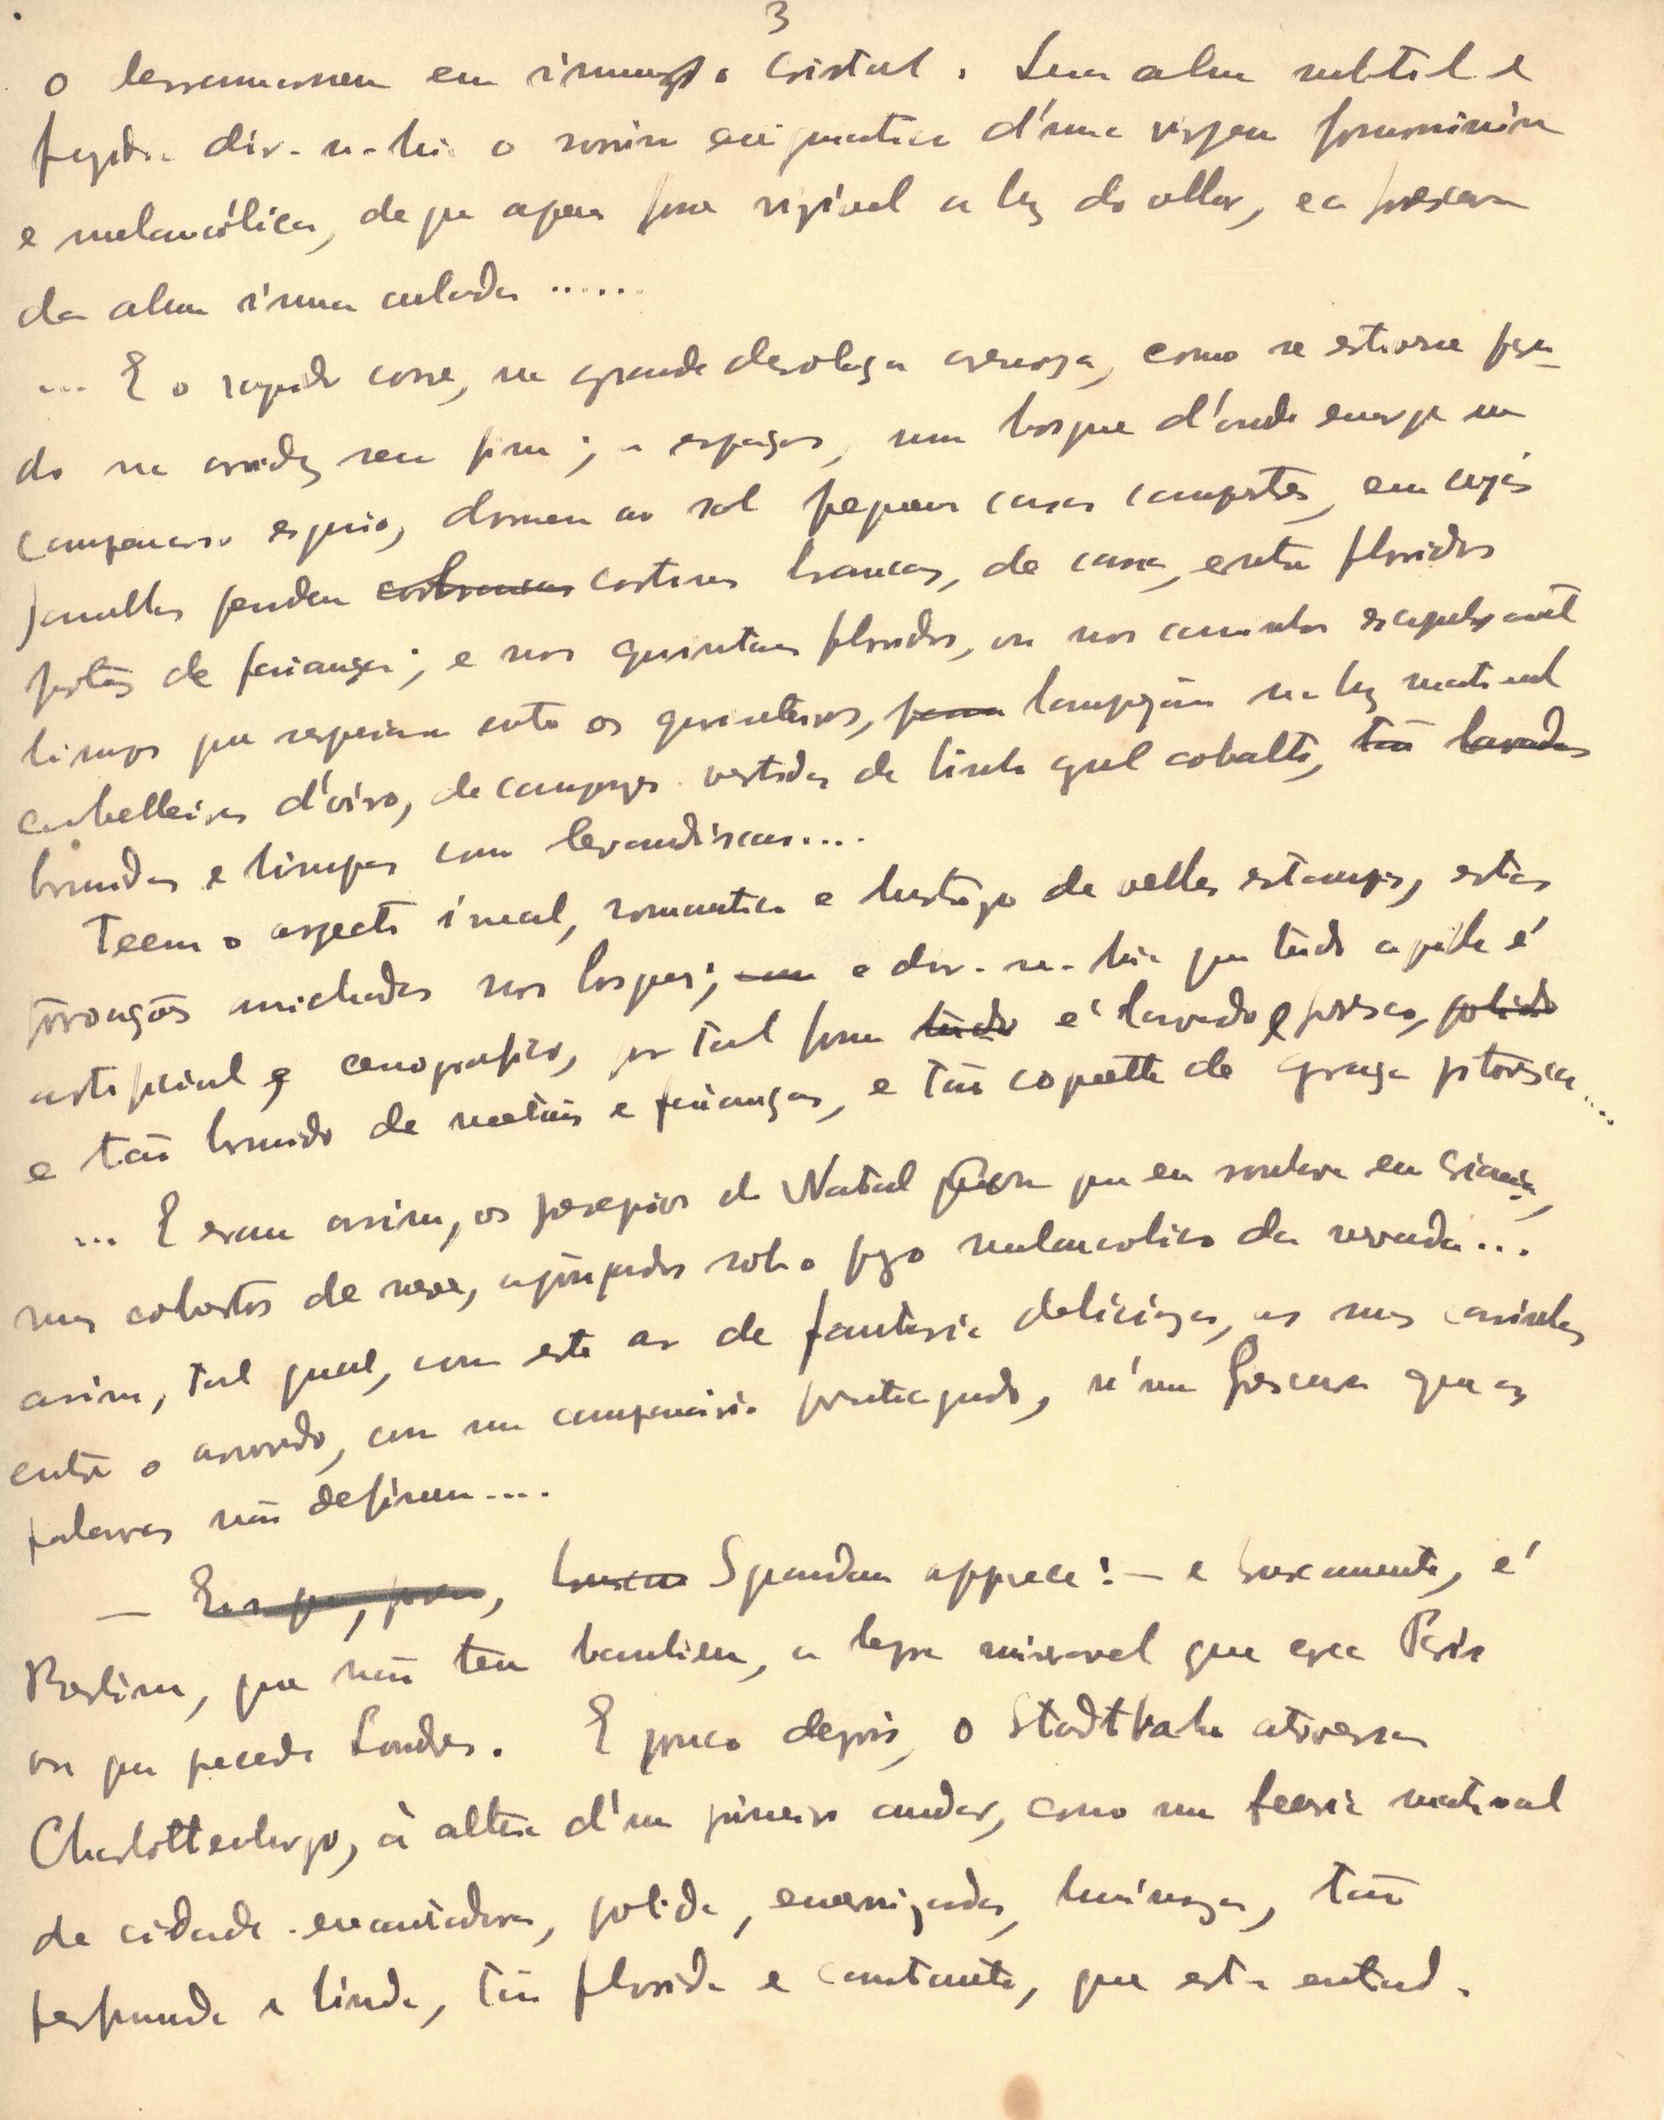 3
o derramassem em immenso cristal. Sua alma subtil e
fugidia dir-se-hia o sorriso enigmatico d'uma virgem
e melancólica, de que apenas fosse visivel a luz do olhar, e a frescura
da alma immaculada.....
... E o rapido corre, na grande desolação arenosa, como se estivesse
do na aridez sem fim; a espaços, um bosque d'onde emerge um
campanario esguio, dormem ao sol pequenas casas campestres, em cujas
janellas pendem cortinas brancas, de cassa, entre floridos
potes de faiança; e nos quintaes floridos, ou nos caminhos escrupulosamente
limpos que serpeiam entre os quinteiros, lampejam na luz matinal
cabelleiras d'oiro, de camponezas vestidas de linho azul cobalto, tão lavadas
brunidas e limpas como levandiscas....
Teem o aspecto irreal, romantico e de velhas estampas, estas
povoações anichadas nos bosques; e dir-se-hia que tudo aquilo é
artificial e cenografico, por tal forma tudo é lavado e fresco, polido
e tão brunido de metaes e faianças, e tão coquette de graça pitoresca....
... E eram assim, os presepios do Natal que eu sonhara em criança,
mas cobertos de neve, agrupados sob o melancolico da nevada...
assim, tal qual, com este ar de fantasia deliciosa, as suas casinhas
entre o arvoredo, com um campanario ponteagudo, n'uma frescura que as
palavras não definem....
— Spandau apparece! — e bruscamente, é
Berlim, que não tem banlieu, a lepra miseravel que cerca Paris
ou que precede Londres. E pouco depois, o Stadtbahn atravessa
Charlottenburgo, à altura d'um primeiro andar, como uma feeria matinal
de cidade encantadora, polida, envernizada, luminosa, tão
perfumada e linda, tão florida e cantante, que esta entrad.